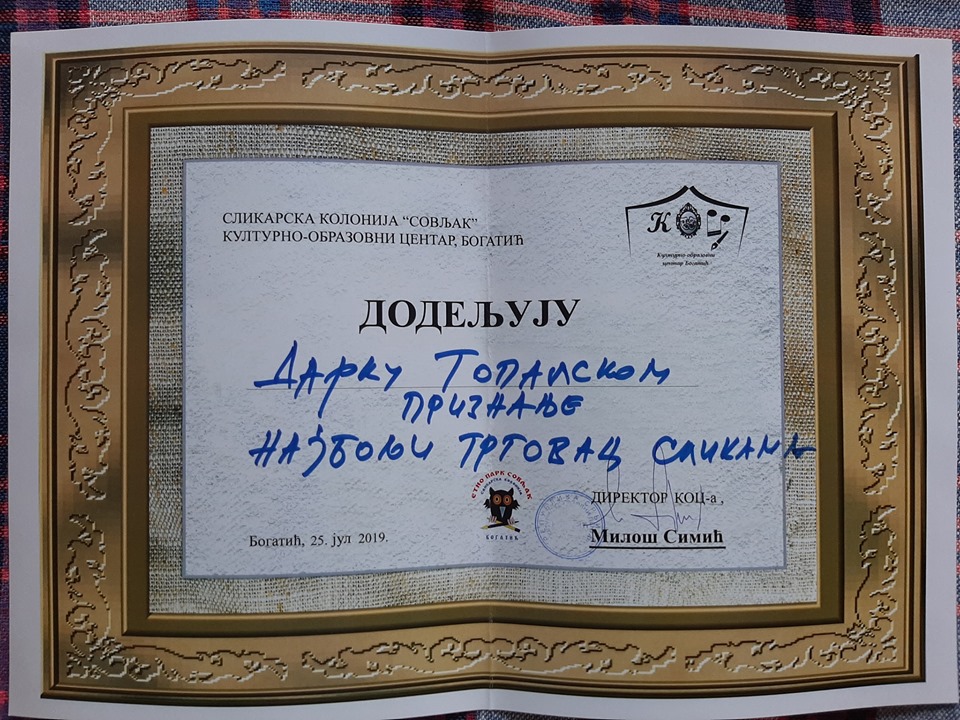 СЛИКАРСКА КОЛОНИЈА “СОВЉАК”
КУЛТУРНО-ОБРАЗОВНИ ЦЕНТАР, БОГАТИЋ
К
Културно-образовни
центар Богатић
ДОДЕЉУЈУ
ДАРКУ ТОПАЛСКОМ
ПРИЗНАЊЕ
НАЈБОЉИ ТРГОВАЦ СЛИКАМА
ЕТНО ПАРК СОВЉАК
СЛИКАРСКА КОЛОНИЈА
БОГАТИЋ
ДИРЕКТОР КОЦ-а ,
Милош Симић
Богатић, 25. јул 2019.